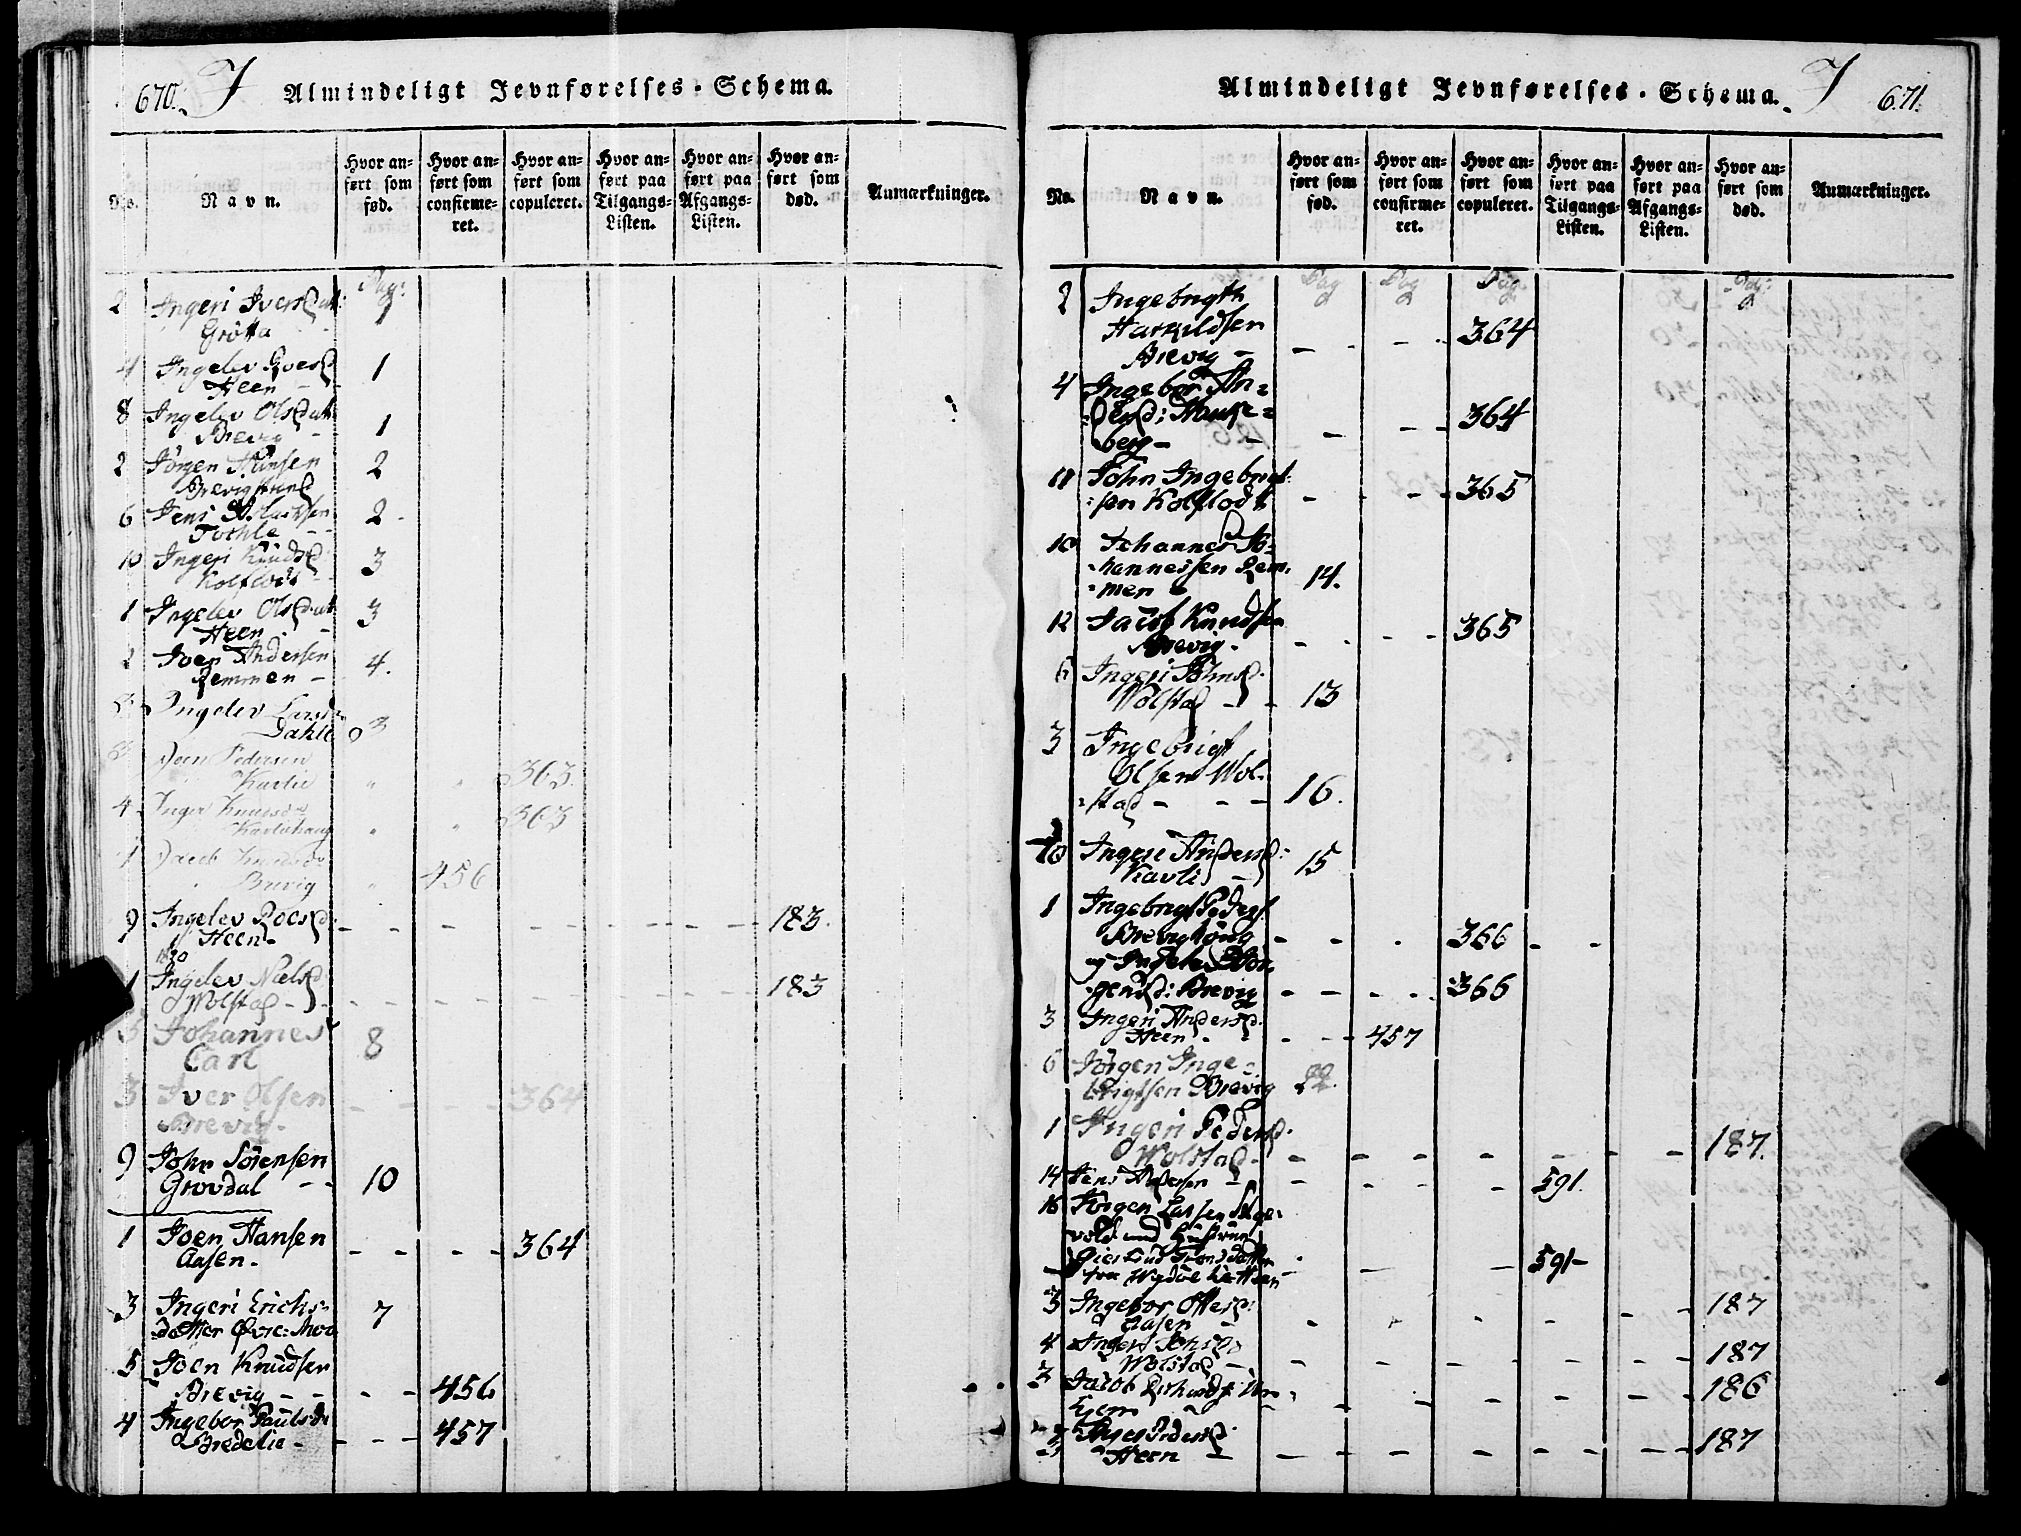 670. J Almindeligt Jevnførelses-Schema.
No.
Navn.
Hvor anført som fød.
Hvor anført som confirmeret.
Hvor anført som copuleret.
Hvor anført paa Tilgangs-Listen.
Hvor anført paa Afgangs-Listen.
Hvor anført som død.
Anmærkninger.
Pag:
2 Ingeri 1
Grötta
4 Ingelev 1
Heen
8 Ingelev Olsdatt: 1
Brevig
2 Jörgen Hansen 2
6 Jens 2
10 Ingeri Knudsd 3
Kolflodt
1 Ingelev Olsdatt 3
Heen
2 Joen Andersen 4.
Remmen
3 Ingelev Larsd 3
Dahle
3 Joen Pedersen
Kavlie " " 363.
4 Inger Knudsd
Kavlihaug " " 363
1 Jacob Knudsen
Brevig " 456
9 Ingelev Roesd. - - - - - 183.
Heen
1820
1 Ingelev Nielsd
Wolstad - - - - - - 183
5 Johannes 8
Carl
3 Iver Olsen - - - 364
Brevig.
9 John Sörensen
Grovdal - - 10
1 Joen Hansen - - - - 364
Aasen.
3 Ingeri Erichs- 7
datter Øvre: Moe
5 Joen Knudsen
Brevig - - - - 456
4 Ingebor Paulsd
Bredelie - - - - 457
Almindeligt Jevnførelses-Schema. J 671.
No.
Navn.
Hvor anført som fød.
Hvor anført som confirmeret.
Hvor anført som copuleret.
Hvor anført paa Tilgangs-Listen.
Hvor anført paa Afgangs-Listen.
Hvor anført som død.
Anmærkninger.
Pag Pag Pag: Pag:
2 Ingebrigth
Harkildsen - - - - 364
Brevig -
4 Ingebor An=
364
berg -
11 John Ingebrigt:
sen Kolflodt - - - 365
10 Johannes Jo=
hannessen Rem= 14.
men
12 Jacob Knudsen 365
Brevig. - - - -
6 Ingeri Johnsd.
Wolstad - - 13
3 Ingebrigt
Olsen Wol-
stad - - - 16.
10 Ingeri Andersd: 15
Kavli -
1 Ingebrigt Peders.
- - . 366 - -
og
gensd: Brevig - - - - 366
3 Ingeri Andersd.
Heen - - - - 457
6 Jörgen Inge=
brigtsen Brevig 22.
1 Ingeri Pedersd.
Wolstad. - - - - - - 187.
14 Jens Andersen - - - - 591.
16 Jörgen Larsen
vold med Hustrue
591-
3 Ingebor - - 187
Aasen
4 Johnsd
Wolstad - - - - - - 187
3 Jacob - - - 186
hjem
Pedersd.
Heen - - - - - - 187